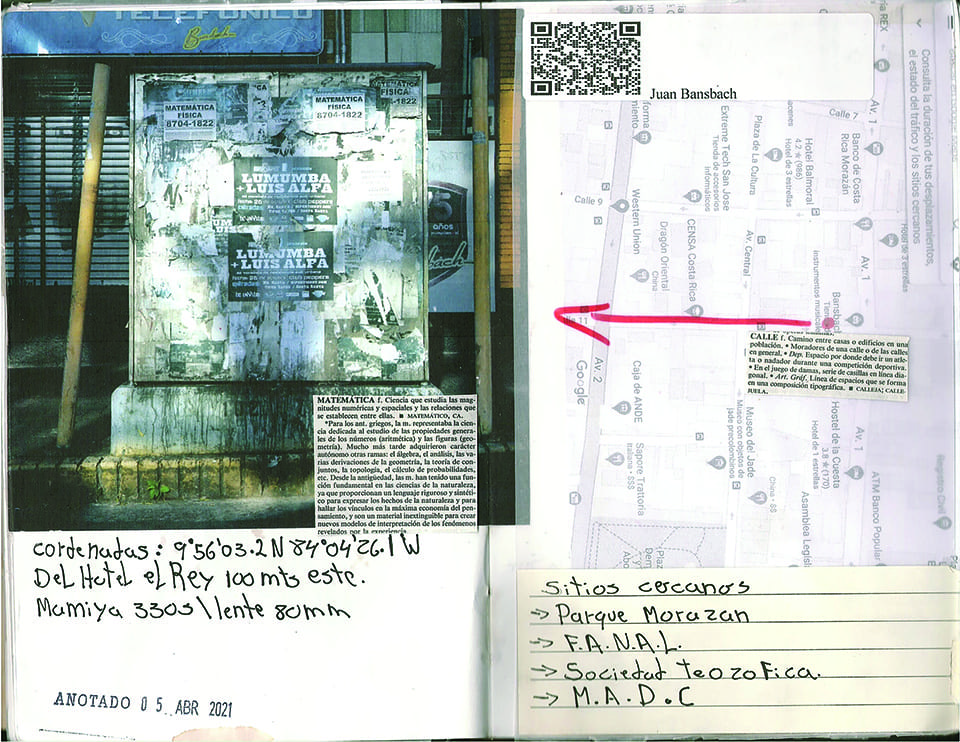 TELEFONICO
Bansbach
MATEMÁTICA
FÍSICA
8704-1822
MATEMÁTICA
FÍSICA
8704-1822
LUMUMBA
+LUIS ALFA
LUMUMBA
+LUIS ALFA
años
MATEMÁTICA f. Ciencia que estudia las mag-
nitudes numéricas y espaciales y las relaciones que
se establecen entre ellas. ■ MATEMÁTICO, CA.
*Para los ant. griegos, la m. representaba la cien-
cia dedicada al estudio de las propiedades genera-
les de los números (aritmética) y las figuras (geo-
metría). Mucho más tarde adquirieron carácter
autónomo otras ramas: el álgebra, el análisis, las va-
rias derivaciones de la geometría, la teoría de con-
juntos, la topología, el cálculo de probabilidades,
etc. Desde la antigüedad, las m. han tenido una fun-
ción fundamental en las ciencias de la naturaleza,
ya que proporcionan un lenguaje riguroso y sintéti-
co para expresar los hechos de la naturaleza y para
hallar los vínculos en la máxima economía del pen-
samiento, y son un material inextinguible para crear
nuevos modelos de interpretación de los fenómenos
revelados por la experiencia.
cordenadas: 9°56'03.2N 84°04'26.1W
Del Hotel el Rey 100 mts este.
Mamiya 330s\lente 80mm
ANOTADO 05 ABR 2021
Juan Bansbach
Consulta la duración de tus desplazamientos,
el estado del tráfico y los sitios cercanos
REX
Av. 1
Calle 7
Banco de Costa
Rica Morazán
Hotel de 3 estrellas
Hotel Balmoral
4.2 ★ (986)
Hotel de 3 estrellas
Plaza de La Cultura
Extreme Tech San Jose
Tienda de accesorios
informáticos
Calle 9
Western Union
Dragón Oriental
China
CENSA Costa Rica
Av. Central
Av. 1
Bansbach
instrumentos musicales
CALLE f. Camino entre casas o edificios en una
población. • Moradores de una calle o de las calles
en general. • Dep. Espacio por donde debe ir un atle-
ta o nadador durante una competición deportiva.
• En el juego de damas, serie de casillas en línea dia-
gonal. • Art. Gráf. Línea de espacios que se forma
en una composición tipográfica. ■ CALLEJA; CALLE-
JUELA.
Google
Av. 2
Caja de ANDE
Sapore Trattoria
Italiana • $$$
Museo del Jade
Museo con objetos de
jade precolombinos
China • $$
Hostel de la Cuesta
3.8 ★ (170)
Hotel de 1 estrellas
Av. 1
ATM Banco Popular
Registro Civil
Asamblea Legisl
Sitios cercanos
→ Parque Morazan
→ F.A.N.A.L.
→ Sociedad teozofica.
→ M.A.D.C